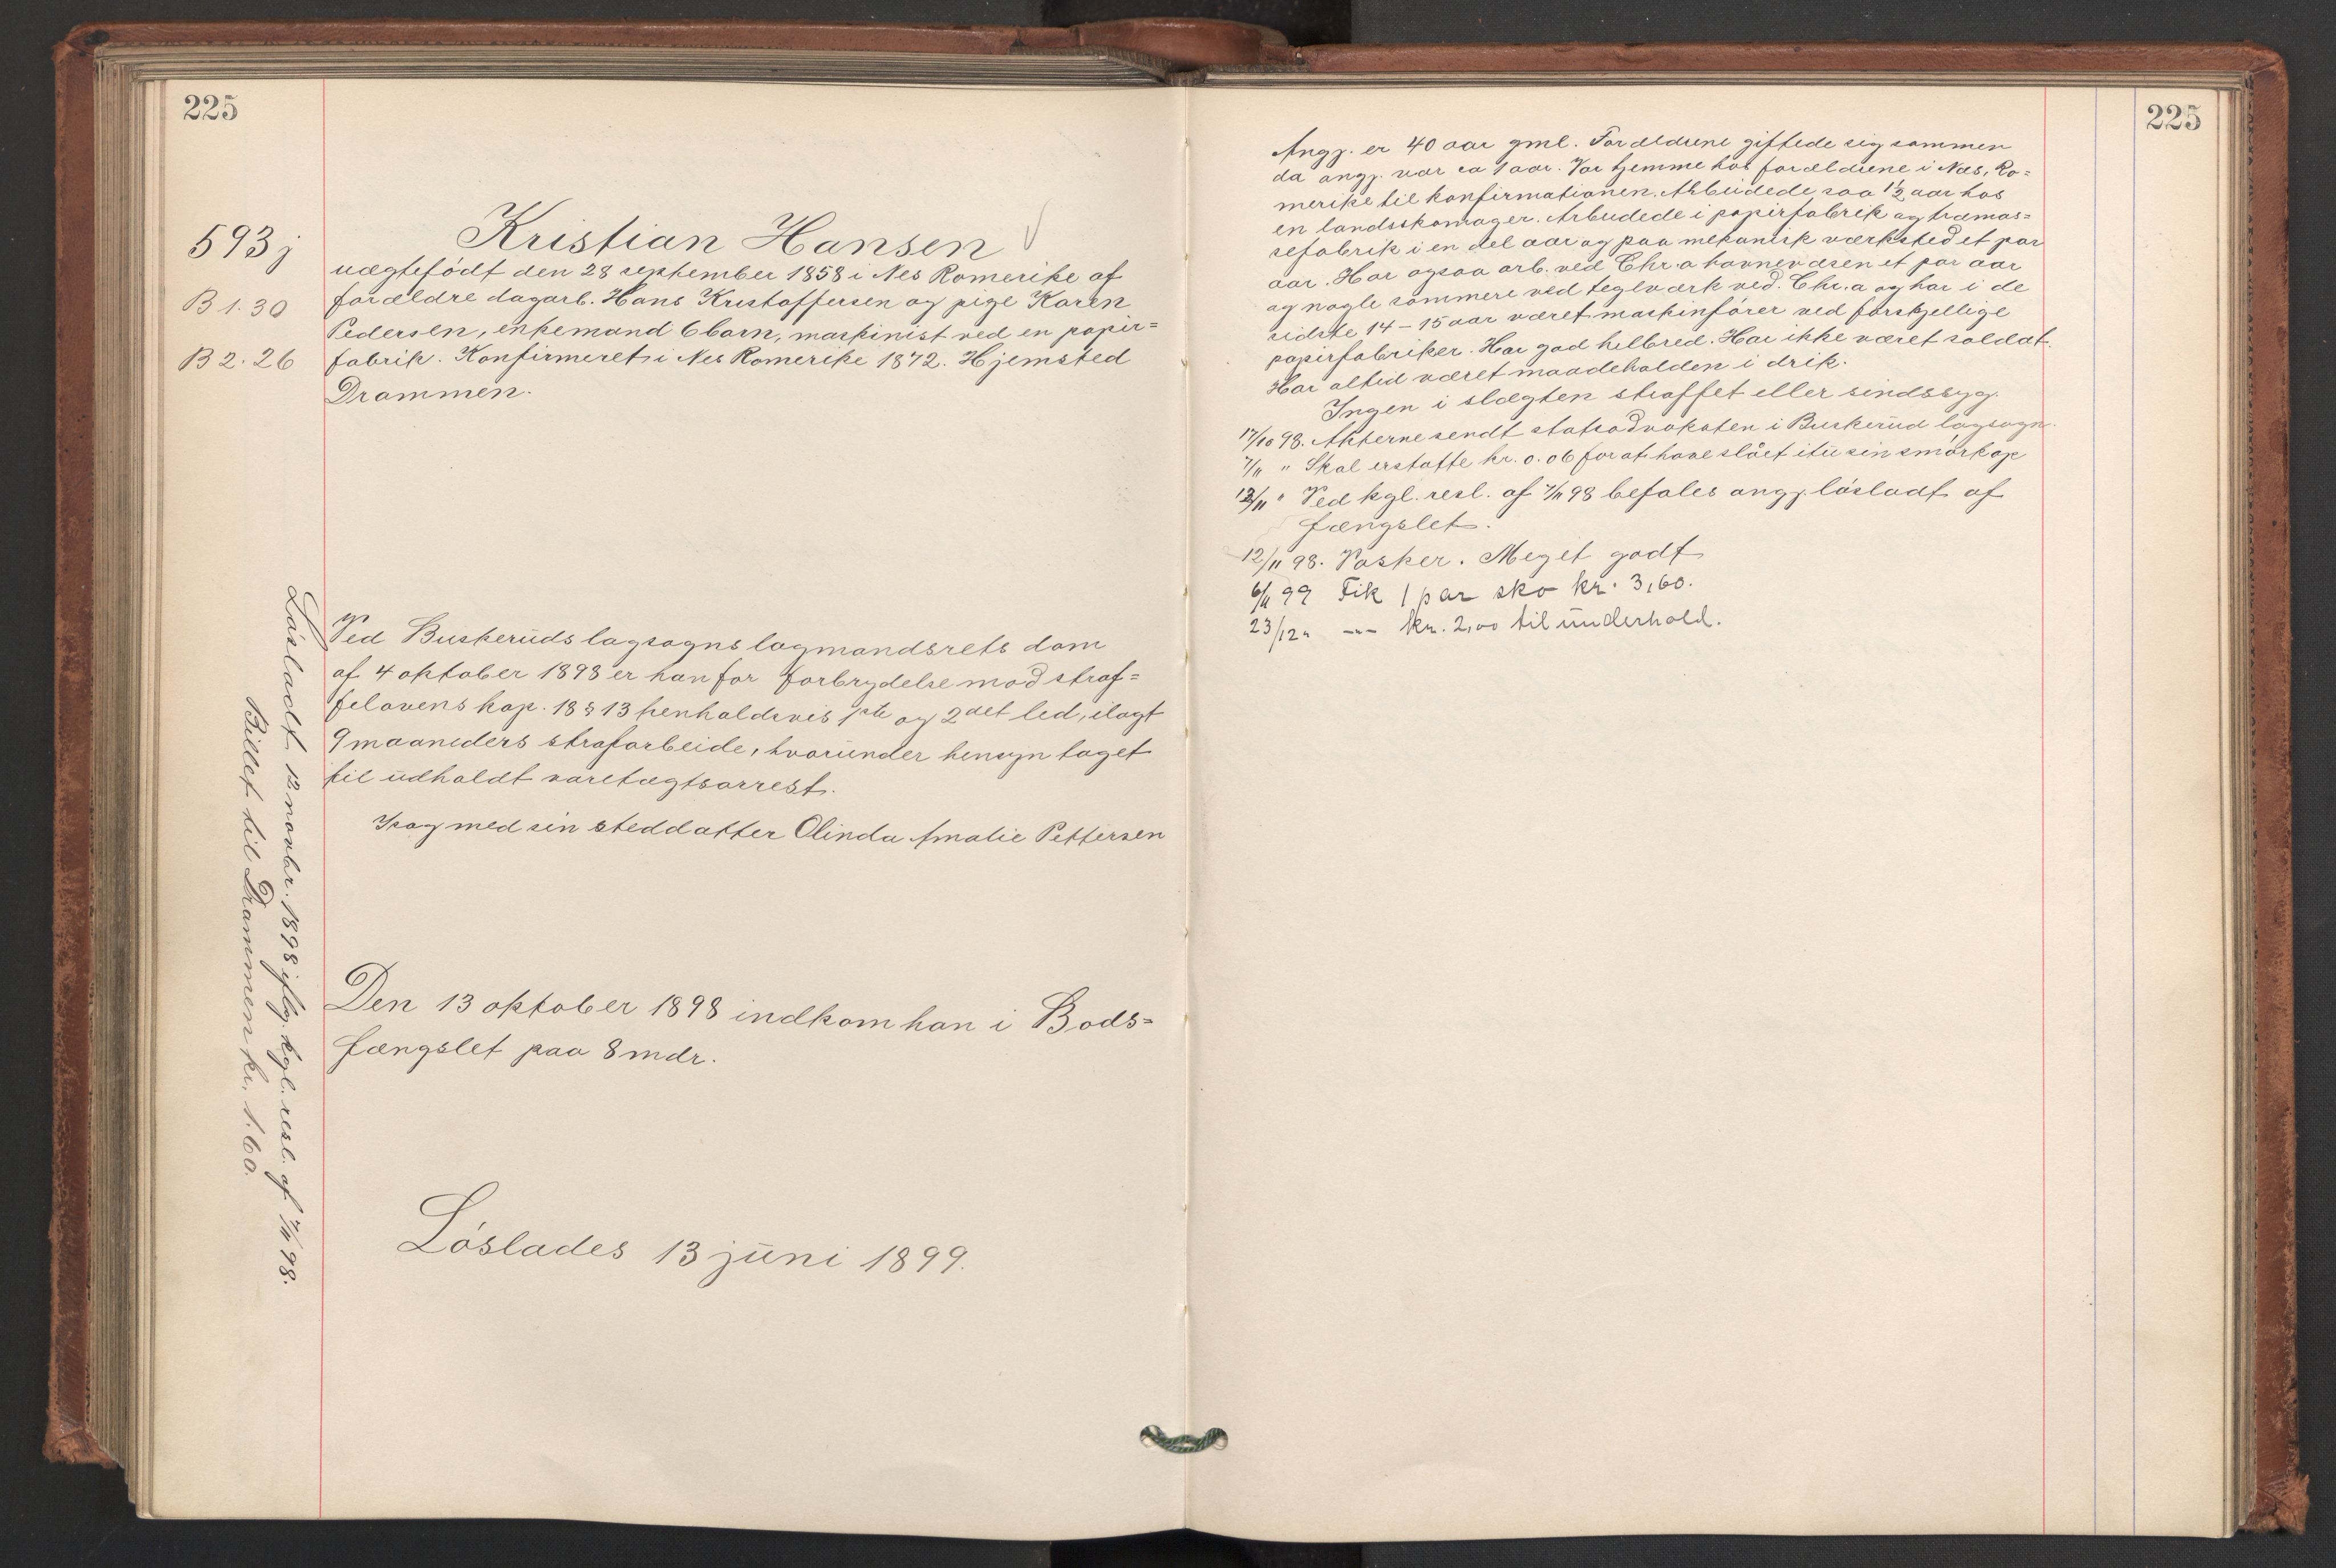 225
593 j
B 1.30
B 2.26
Kristian Hansen
uægtefödt den 28 september 1858 i Nes Romerike af
forældre dagarb. Hans Kristoffersen og pige Karen
Pedersen, enkemand 6 barn, maskinist ved en papir=
fabrik. Konfirmeret i Nes Romerike 1872. Hjemsted
Drammen.
Ved Buskerüds lagsogns lagmandsrets dom
af 4 oktober 1898 er han for forbrydelse mod straf=
felovens kap. 18 § 13 henholdsvis 1ste og 2det led, ilagt
9 maaneders strafarbeide, hvoründer hensyn taget
til üdholdt varetægtsarrest.
I sag med sin steddatter Olinda Amalie Pettersen
Den 13 oktober 1898 indkom han i Bods=
fængslet paa 8 mdr.
Löslades 13 jüni 1899.
Lösladt 12 novbr. 1898 iflg. kgl. resl. af 7/11 98.
Billet til Drammen kr. 1.60.
225
Angj. er 40 aar gml. Forældrene giftede sig sammen
da angj. var ca 1 aar. Var hjemme hos forældrene i Næs, Ro=
merike til konfirmationen. Arbeidede saa 1½ aar hos
en landsskomager. Arbeidede i papirfabrik og træmas=
sefabrik i en del aar og paa mekanisk værksted et par
aar. Har ogsaa arb. ved Chr.a havnevæsen et par aar
og nogle sommere ved teglværk ved Chr.a og har i de
sidste 14 - 15 aar været maskinförer ved forskjellige
papirfabriker. Har god helbred. Har ikke været soldat.
Har altid været maadeholden i drik.
Ingen i slægten straffet eller sindssyg.
17/10 98. Akterne sendt statsadvokaten i Buskerüd lagsogn.
7/11 " Skal erstatte kr. 0.06 for at have slået itü sin smörkop
12/11 " Ved kgl. resl. af 7/11 98 befales angj. lösladt af
fængslet.
12/11 98. Vasker. Meget godt
6/11 99 Fik 1 par sko kr. 3,60.
23/12 " -"- kr. 2,00 til ünderhold.